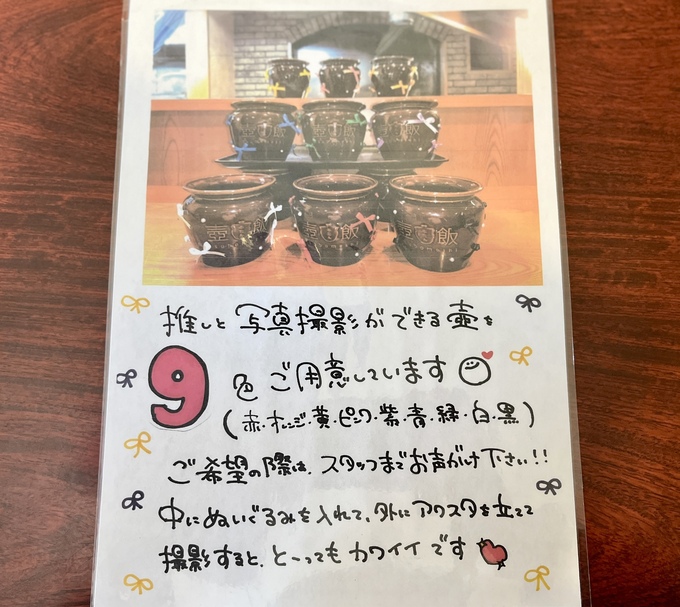 壺団飯
壺団飯
壺団飯
壺団飯
推しと写真撮影ができる壷を
9色ご用意しています
(赤・オレンジ・黄・ピンク・紫・青・緑・白・黒)
ご希望の際は、スタッフまでお声がけ下さい!!
中にぬいぐるみを入れて、外にアクスタを立てて
撮影すると、と〜ってもカワイイです